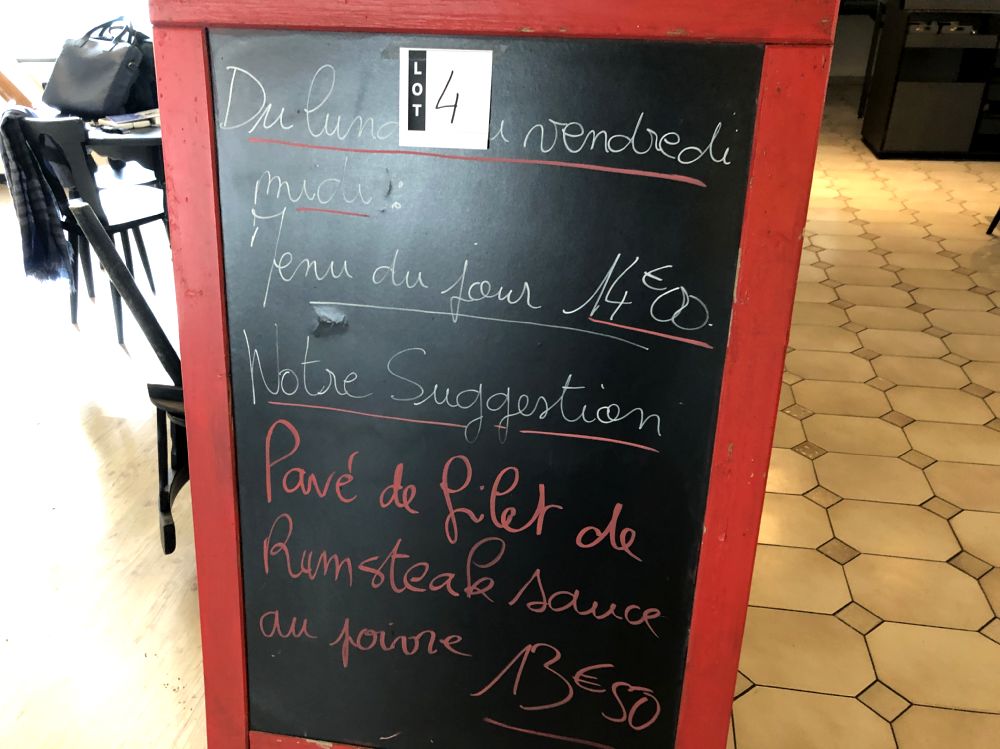 LOT 4
Du lund u vendredi
midi :
Menu du jour 14€00.
Notre Suggestion
Pavé de filet de
Rumsteak sauce
au poivre
13€50